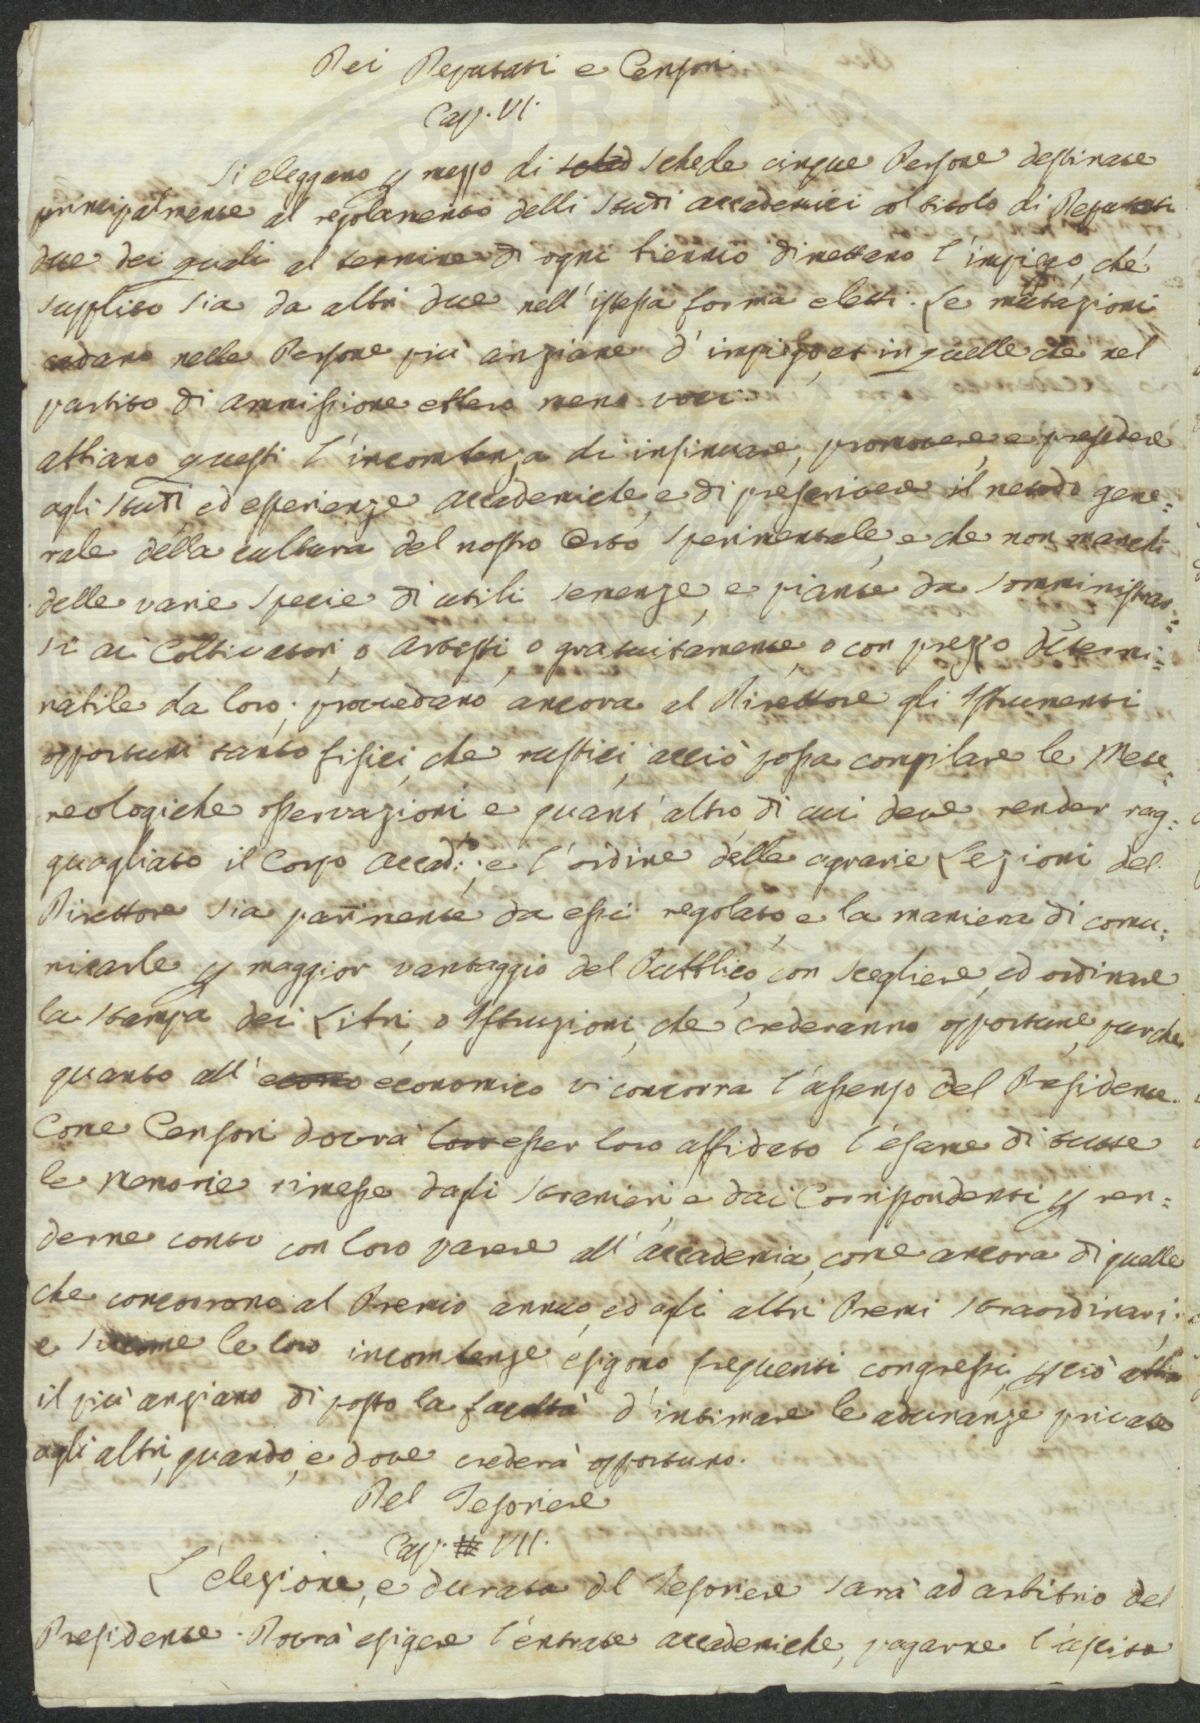 Dei Deputati e Censori
Cap. VI.
Si eleggano p mezzo di sched schede cinque Persone destinate
principalmente al regolamento delli Studi accademici col titolo di Deputati
due dei quali al termine di ogni biennio dimettano l'impiego, che
supplito sia da altri due nell'istessa forma eletti. Le mutazioni
cadano nelle Persone più anziane d'impiego, et in quelle che nel
partito di ammissione ebbero meno voci.
abbiano questi l'incombenza di insinuare, promovere, e presedere
agli Studi ed esperienze accademiche, e di prescrivere il metodo gene=
rale della cultura del nostro Orto Sperimentale, e che non manchi
delle varie Specie di utili semenze, e piante da somministrar=
si ai Coltivatori, o Artesti, o gratuitamente, o con prezzo determi=
nabile da loro; provvedano ancora al Direttore gli Istrumenti
opportuni tanto fisici, che rustici, acciò possa compilare le Mete=
reologiche osservazioni e quant'altro, di cui deve render rag=
guagliato il Corpo Accad.co; e l'ordine delle agrarie Lezioni del
Direttore sia parimente da essi regolato, e la maniera di comu=
nicarle p maggior vantaggio del Pubblico, con scegliere, ed ordinare
la stampa dei Libri, o Istruzioni, che crederanno opportune, purche
quanto all'econo economico vi concorra l'assenso del Presidente.
Come Censori dovrà loro esser loro affidato l'esame di tutte
le Memorie rimesse dagli Stranieri e dai Corrispondenti p ren=
derne conto con loro parere all'accademia, come ancora di quelle
che concorrono al Premio annuo, ed agli altri Premi straordinari;
e siccome le loro incombenze esigono frequenti congressi, p ciò abbia
il più anziano di posto la facoltà d'intimare le adunanze private
agli altri, quando, e dove crederà opportuno.
Del Tesoriere
Cap. VII.
L'elezione, e durata del Tesoriere sarà ad arbitrio del
Presidente. Dovrà esigere l'entrate accademiche, pagarne l'uscita